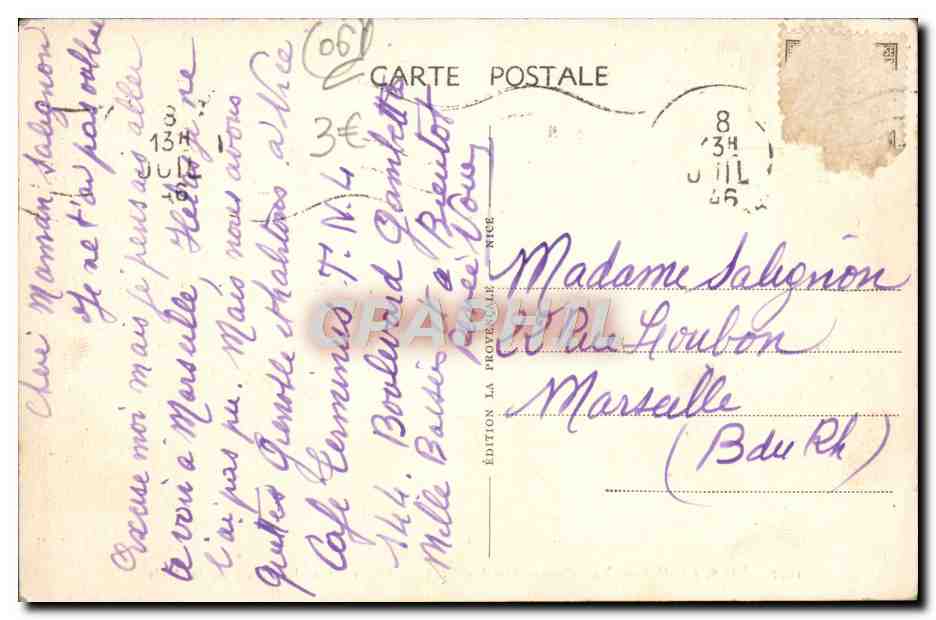 Cheri Maman Salignon
Je ne t'ai pas oublié
Excuse moi mais je pensais aller
te voir à Marseille, je ne
l'ai pas pu. Mais nous avons
quittés Grenoble et habitons à Nice
Café Terminus T. N. L
144. Boulevard Gambetta
Mille Baisers a Bientot
(06)
3€
CARTE POSTALE
8
13H
JUIL
46
8
13H
JUIL
46
EDITION LA PROVENCALE NICE
CPAPHIL
Madame Salignon
Rue Loubon
Marseille
(B du Rh)